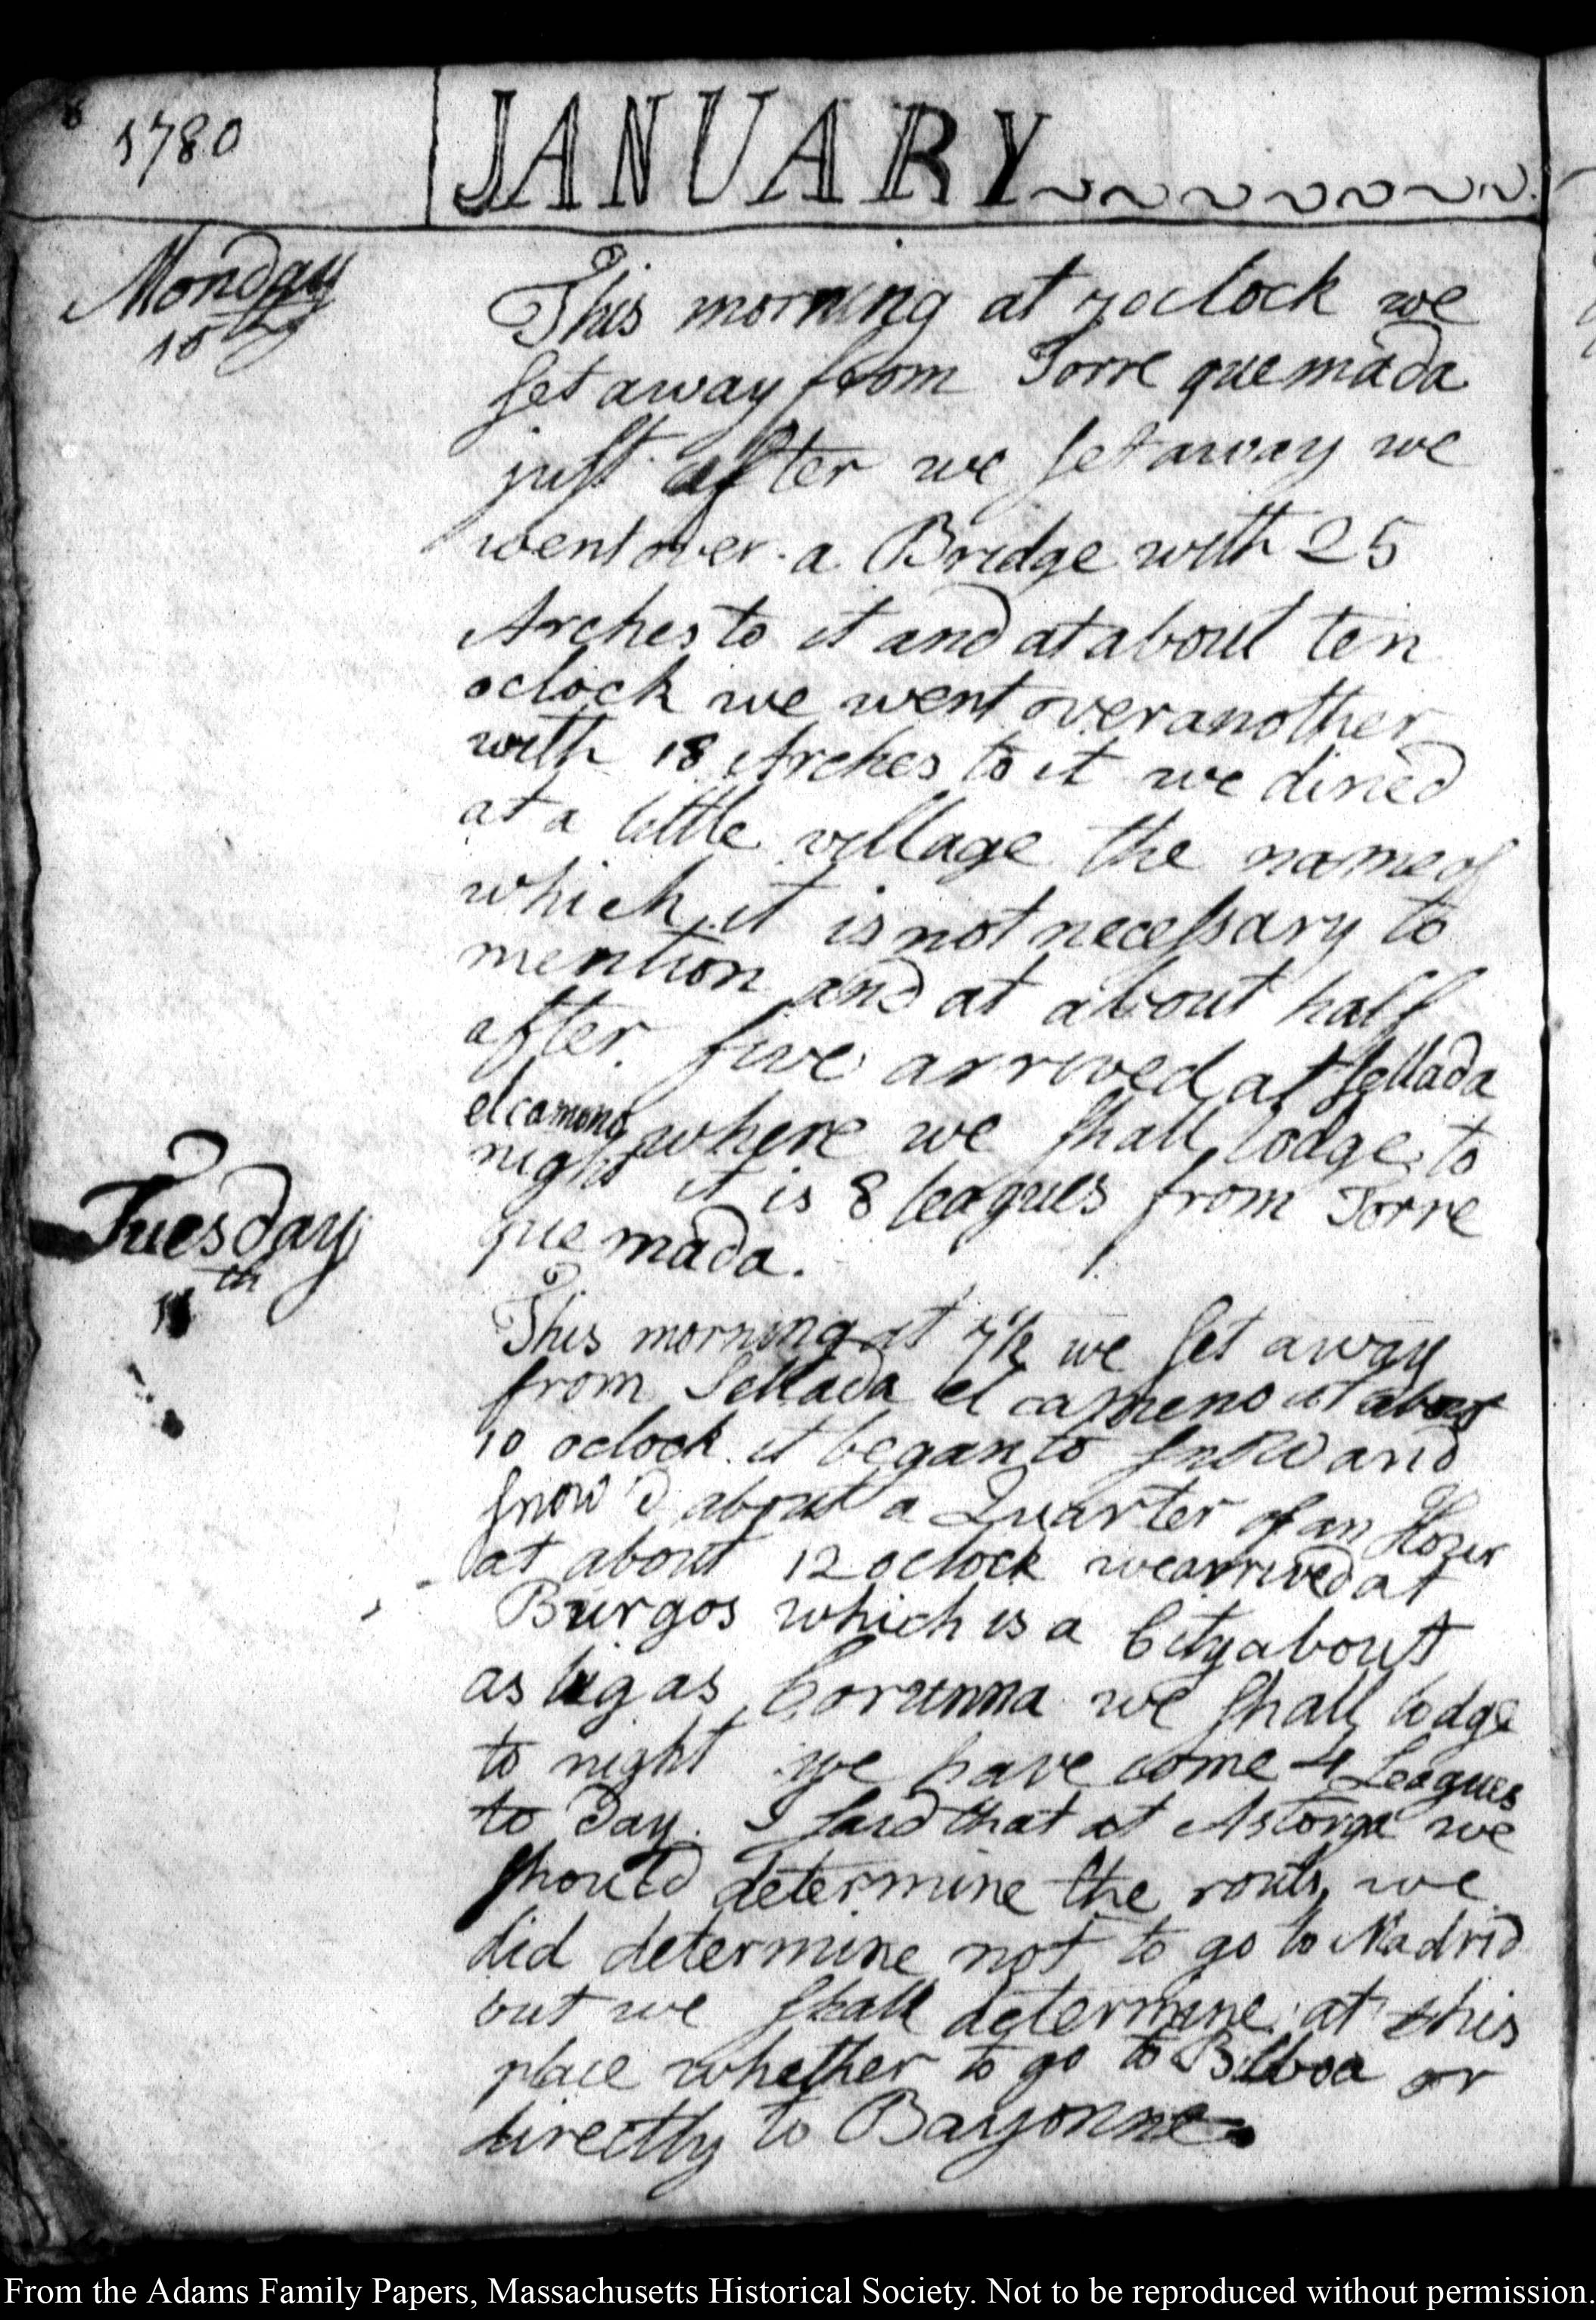 8
1780
JANUARY
Monday
10th
This morning at 7 oclock we
set away from Torre quemada
just after we set away we
went over a Bridge with 25
Arches to it and at about ten
oclock we went over another
with 18 Arches to it we dined
at a little village the name of
which it is not necessary to
mention and at about half
after five arrived at Sellada
el camong where we shall lodge to
night it is 8 leagues from Torre
que mada.
Tuesday
11th
This morning at 7 1/2 we set away
from Sellada el cameno at about
10 oclock it began to snow and
snow'd about a Quarter of an Hour
at about 12 oclock we arrived at
Burgos which is a City about
as big as Corunna we shall lodge
to night we have come 4 Leagues
to Day. I said that at Astorga we
should determine the route, we
did determine not to go to Madrid
but we shall determine at this
place whether to go to Bilboa or
directly to Bayonne.
From the Adams Family Papers, Massachusetts Historical Society. Not to be reproduced without permission.